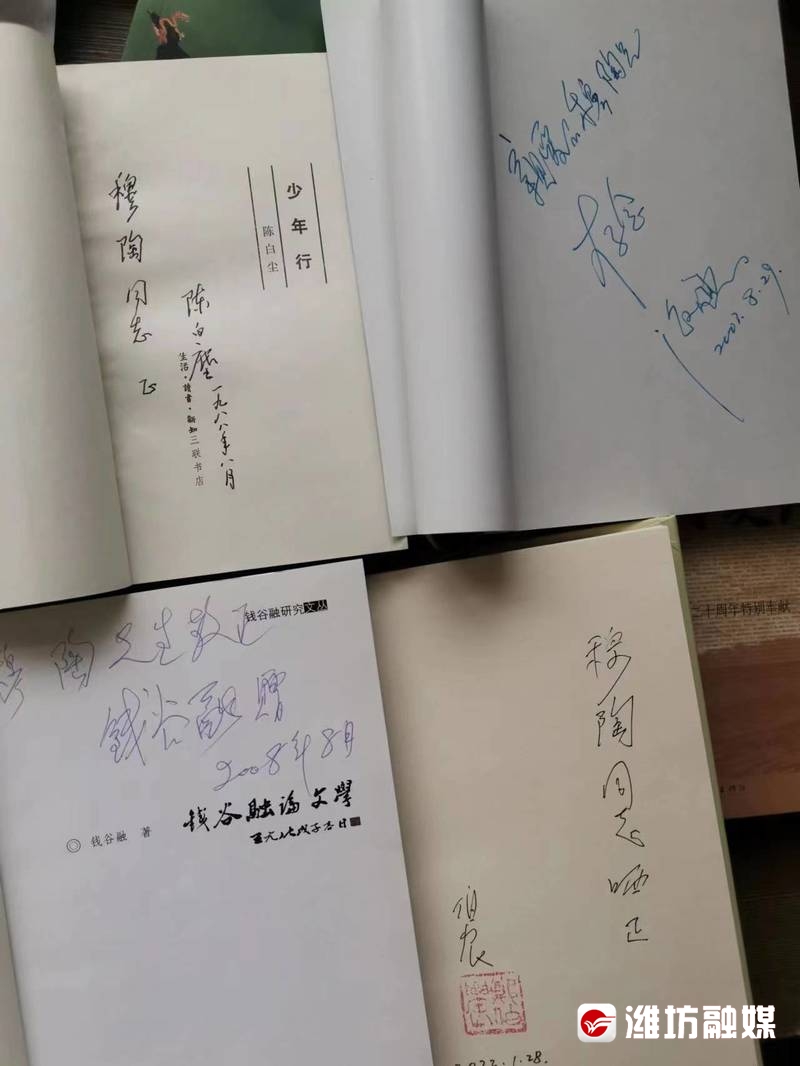 少年行
陈白尘
穆陶同志 正
陈白尘
一九八八年八月
生活·读书·新知三联书店
穆陶兄
存念
2007.8.29.
钱谷融研究文丛
穆陶先生教正
钱谷融 赠
2008年8月
钱谷融论文学
钱谷融 著
穆陶同志哂正
伯农
1.28.
二十周年特别奉献
潍坊融媒